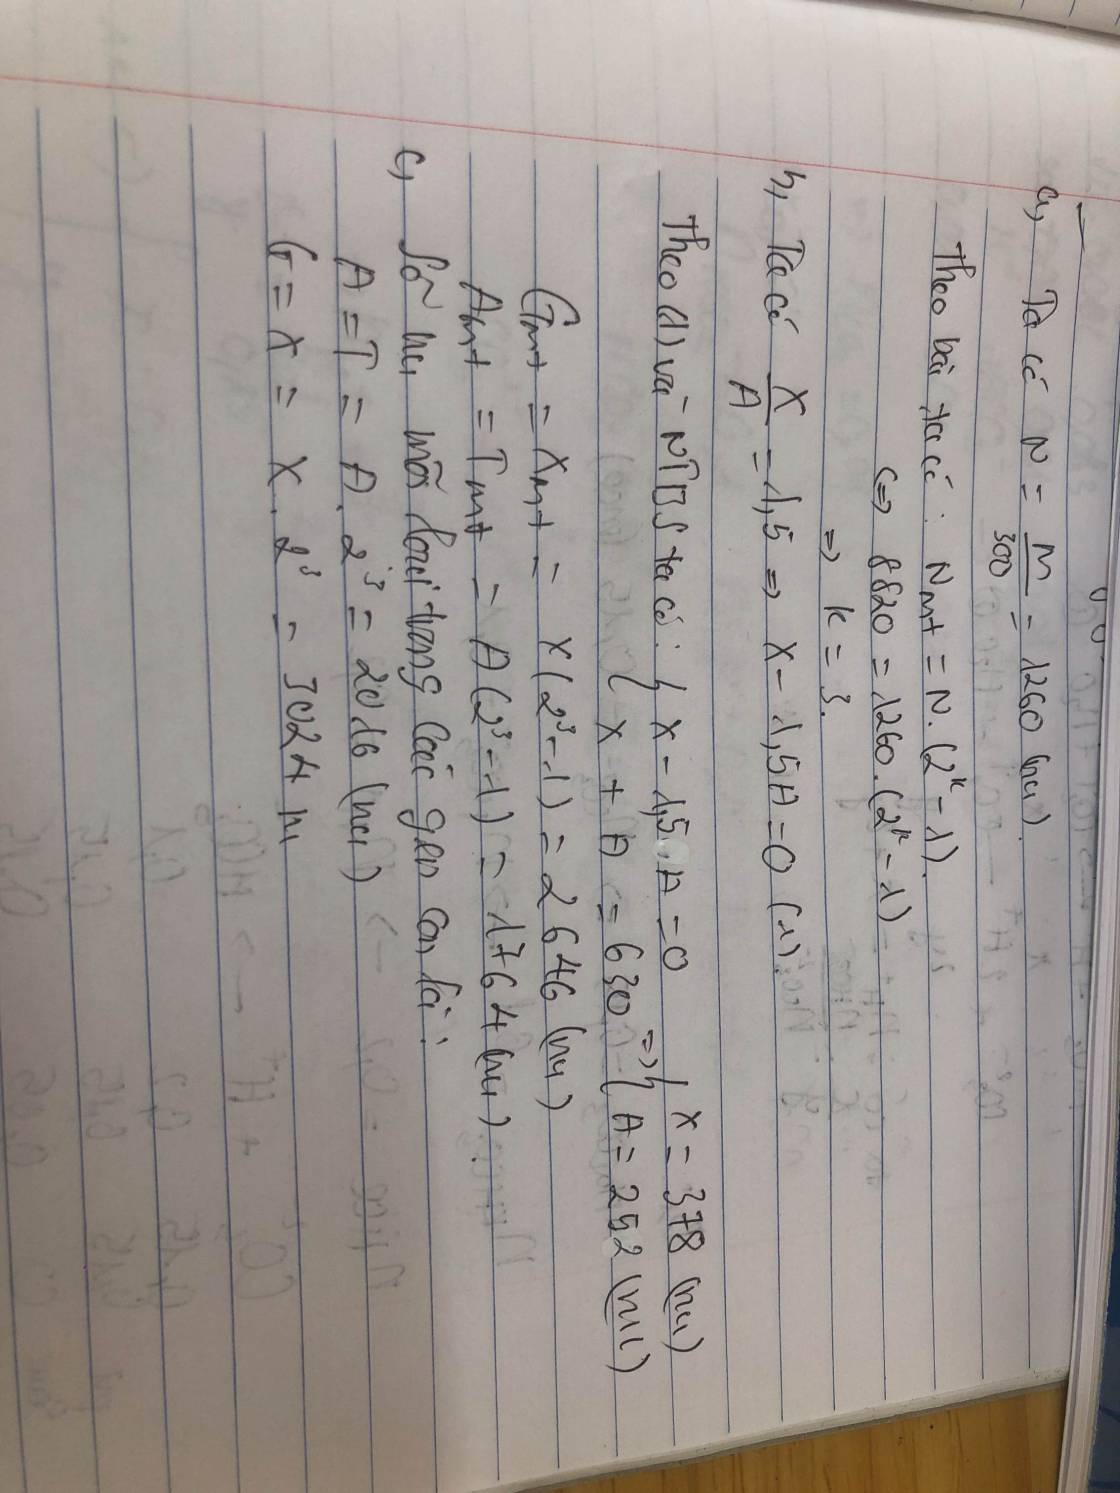 a, Ta có N = M/300 = 1260 (nu)
Theo bài, ta có: Nmt = N.(2^k - 1).
<=> 8820 = 1260.(2^k - 1)
=> k = 3.
b, Ta có X/A = 1,5 => X - 1,5A = 0 (1)
Theo (1) và NTBS ta có: { X - 1,5.A = 0 { X = 378 (nu)
{ X + A = 630 => { A = 252 (nu)
Gmt = Xmt = X(2^3 - 1) = 2646 (nu)
Amt = Tmt = A(2^3 - 1) = 1764 (nu).
c, Số nu mỗi loại trong các gen con là:
A = T = A.2^3 = 2016 (nu)
G = X = X.2^3 = 3024 nu